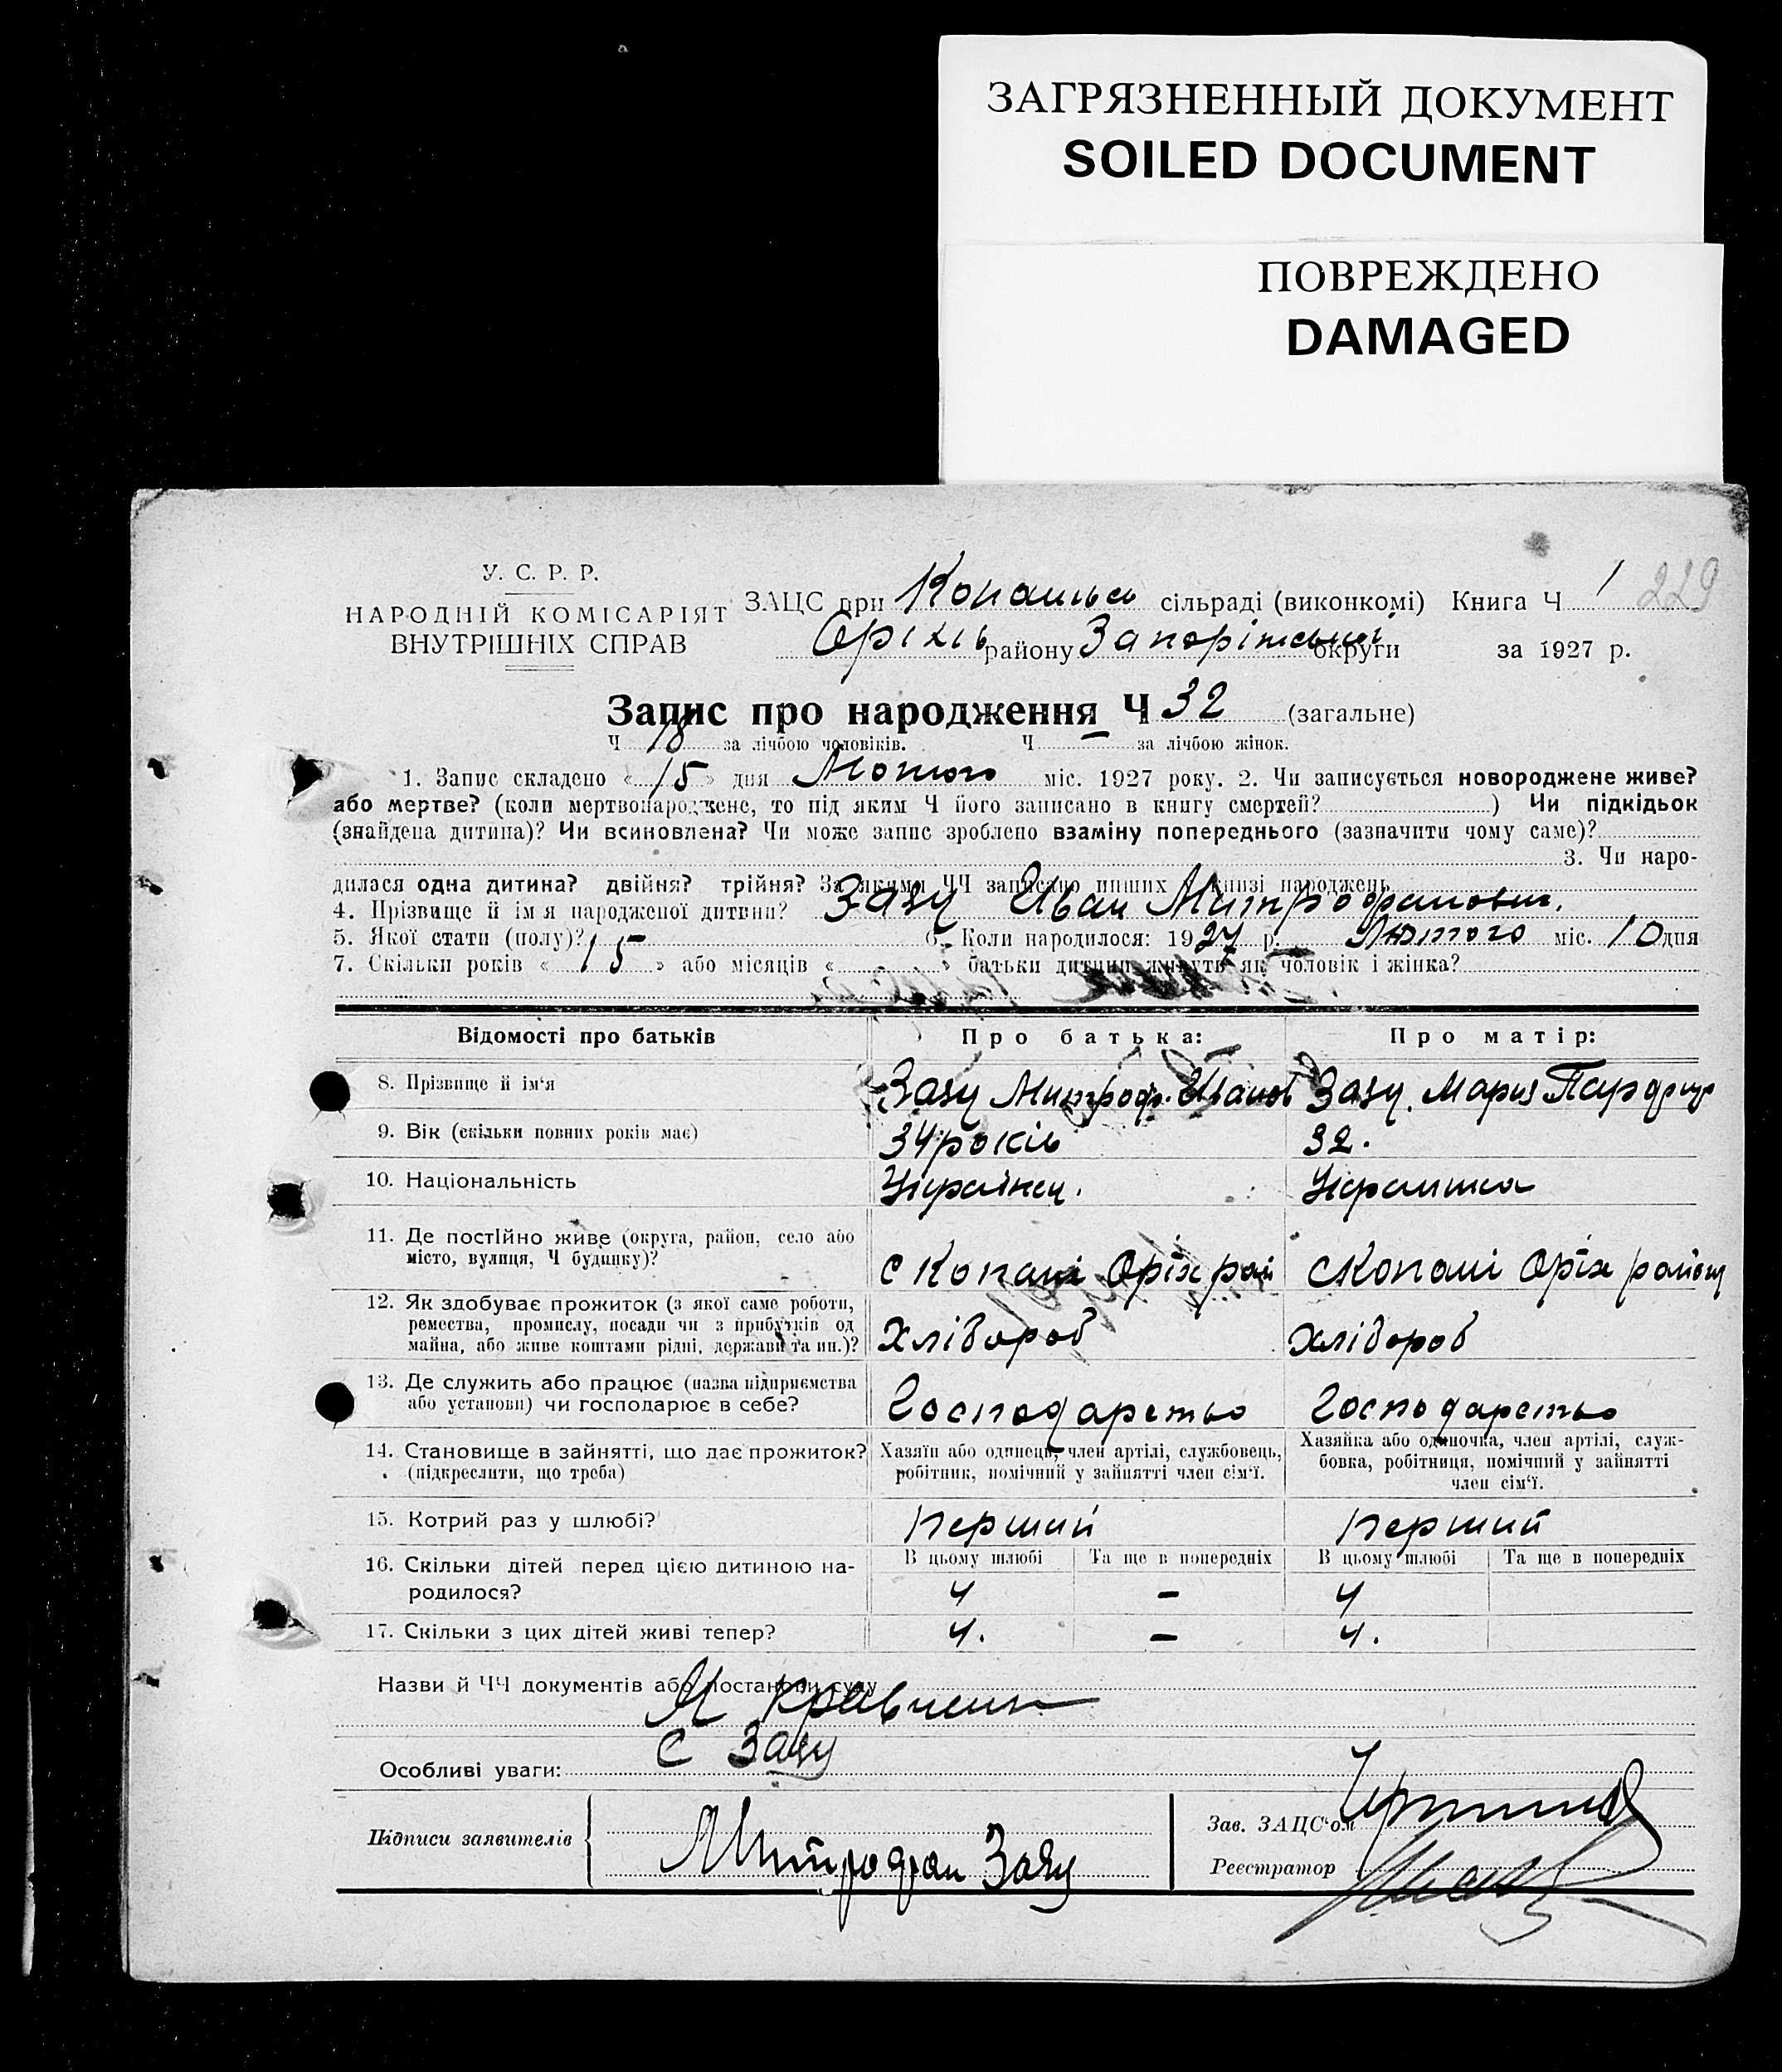 ЗАГРЯЗНЕННЫЙ ДОКУМЕНТ
SOILED DOCUMENT
ПОВРЕЖДЕНО
DAMAGED
229
У. С. Р. Р.
НАРОДНІЙ КОМІСАРІЯТ
ВНУТРІШНІХ СПРАВ
ЗАЦС при сільраді (виконкомі) Книга Ч 1
Оріхів району Запоріжської округи за 1927 р.
Запис про народження Ч 32 (загальне)
Ч 18 за лічбою чоловіків. Ч — за лічбою жінок.
1. Запис складено « 15 » дня Лютого міс. 1927 року. 2. Чи записується новороджене живе?
або мертве? (коли мертвонароджене, то під яким Ч його записано в книгу смертей? ) Чи підкідьок
(знайдена дитина)? Чи всиновлена? Чи може запис зроблено взаміну попереднього (зазначити чому саме)?
3. Чи наро-
дилася одна дитина? двійня? трійня? За якими ЧЧ записано инших в книзі народжень
4. Прізвище й ім'я народженої дитини? Зазу Иван Митрофанович.
5. Якої стати (полу)? 15 6. Коли народилося: 1927 р. Лютого міс. 10 дня
7. Скільки років « » або місяців « » батьки дитини живуть як чоловік і жінка?
Відомості про батьків
Про батька:
Про матір:
8. Прізвище й ім'я
Зазу Митроф. Иванов
Зазу Мария
9. Вік (скільки повних років має)
34 років
32.
10. Національність
Українец.
Украинка
11. Де постійно живе (округа, район, село або
місто, вулиця, Ч будинку)?
с Копані Оріх рай
с Копані Оріх району
12. Як здобуває прожиток (з якої саме роботи,
ремества, промислу, посади чи з прибутків од
майна, або живе коштами рідні, держави та ин.)?
Хлібороб
хлібороб
13. Де служить або працює (назва підприємства
або установи) чи господарює в себе?
Господарство
Господарство
14. Становище в зайнятті, що дає прожиток?
(підкреслити, що треба)
Хазяїн або одинець, член артілі, службовець,
робітник, помічний у зайнятті член сім'ї.
Хазяйка або одиночка, член артілі, служ-
бовка, робітниця, помічний у зайнятті
член сім'ї.
15. Котрий раз у шлюбі?
первий
первий
16. Скільки дітей перед цією дитиною на-
родилося?
В цьому шлюбі
Та ще в попередніх
В цьому шлюбі
Та ще в попередніх
4
—
4
17. Скільки з цих дітей живі тепер?
4.
—
4.
Назви й ЧЧ документів або постанови суду
С Зазу
Особливі уваги:
Підписи заявителів
Митрофан Зазу
Зав. ЗАЦС'ом
Реєстратор